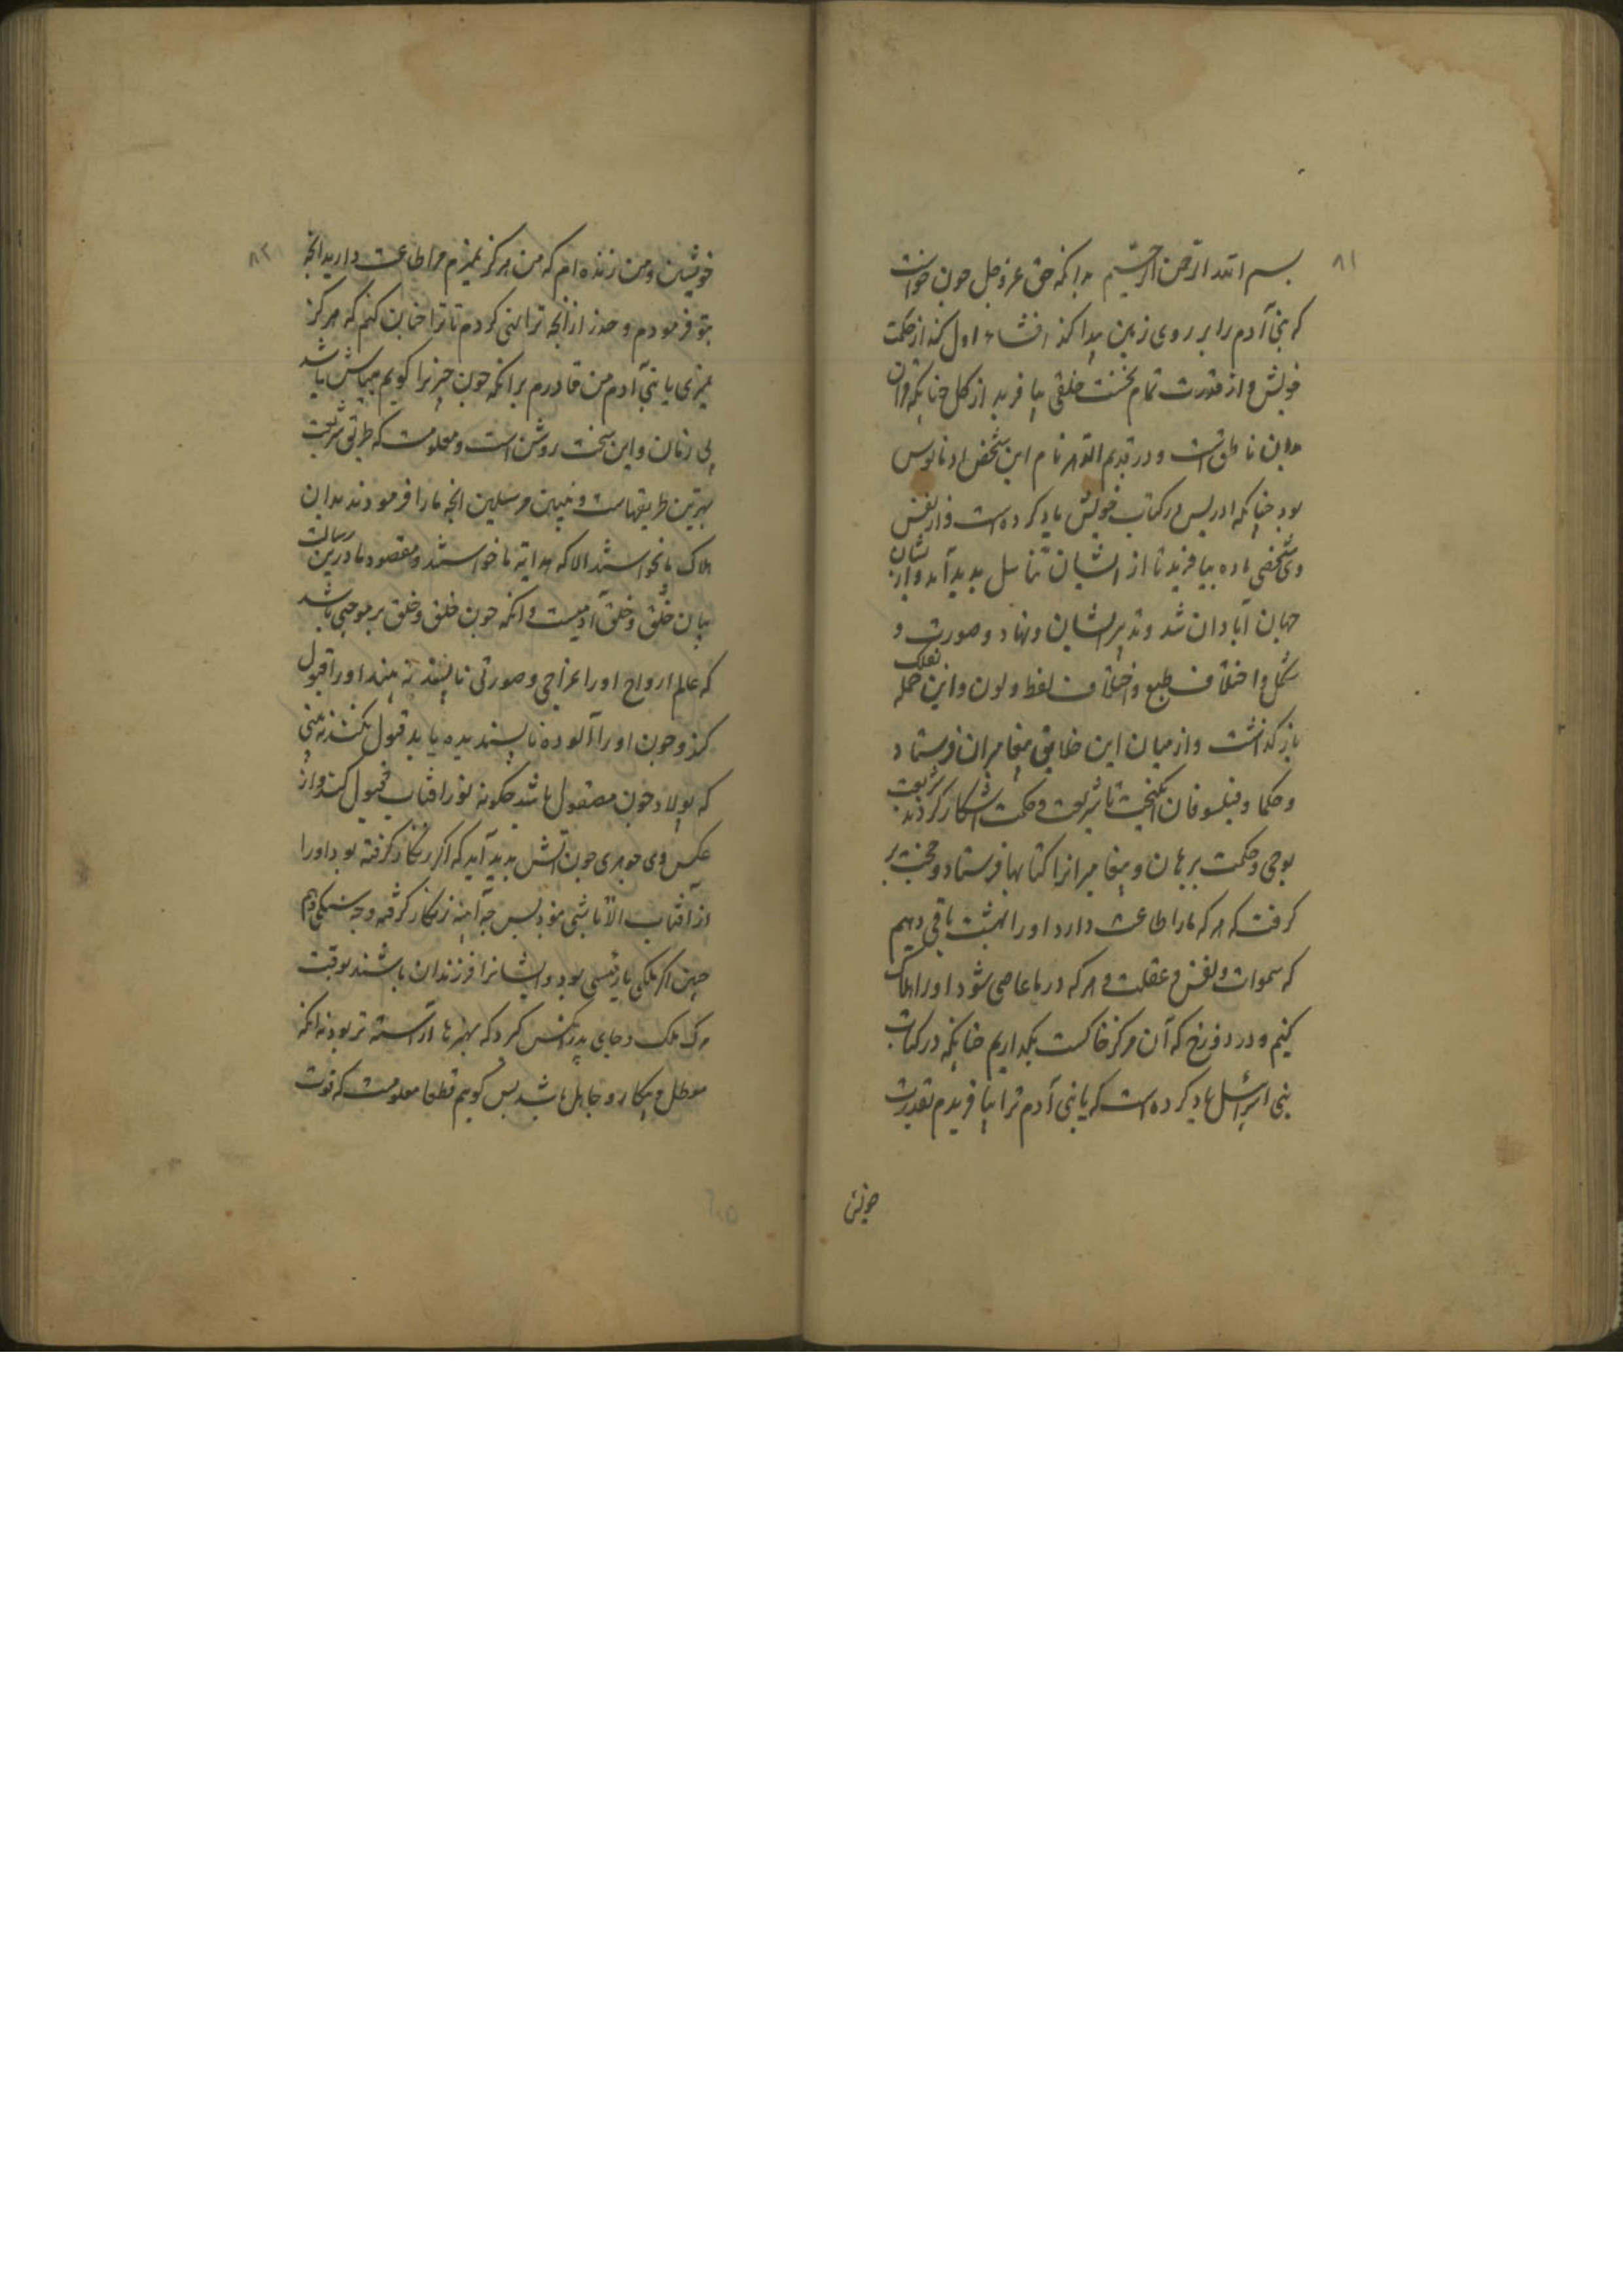 ۸۱
بسم الله الرحمن الرحیم بدانکه حق عز و جل جون خواست
که بنی آدم را بر روی زمین پیدا کند انشاء اول کند از حکمت
خویش و از قدرت تمام نخست خلقی بیافرید از کل جنانکه قران
بدان ناطق است و در قدیم الدهر نام این شخص ادمانوس
بود جنانکه ادریس در کتاب خویش یاد کرده است و از نفس
وی شخصی ماده بیافرید تا از ایشان تناسل پدید آمد و از نشان
جهان آبادان شد و تدبیر ایشان و نهاد و صورت و
شکل و اختلاف طبع و اختلاف لفظ و لون و این جمله بفلک
باز گذاشت و از میان این خلایق پیغامبران فرستاد
و حکما و فیلسوفان انکیخت تا شریعت و حکمت آشکار کردند شریعت
بوحی و حکمت ببرهان و پیغامبرانرا کتابها فرستاد و حجت بر
کرفت که هر که ما را طاعت دارد او را بهشت باقی دهیم
که سموات و نفس و عقلست و هر که در ما عاصی شود او را هلاک
کنیم و در دوزخ که آن مرکز خاکست بگذاریم جنانکه در کتاب
بنی اسرائیل یاد کرده است که یا بنی آدم ترا بیافریدم بقدرت
خویش
۸۲
خویش و من زنده ام که من هرکز نمیرم مرا طاعت دارید انجه
بتو فرمودم و حذر از انجه ترا نهی کردم تا ترا جنان کنم که هرکز
نمیری یا بنی آدم من قادرم برانکه جون جیزیرا کویم بباش باشد
بی زمان و این سخت روشن است و معلومست که طریق شریعت
بهترین طریقهاست و نبیین مرسلین انجه ما را فرمودند بدان
هلاک ما نخواستند الا که هدایة ما خواستند و مقصود ما درین رسالت
بیان خُلق و خلق آدمیست و انکه جون خلق و خلق بر موجبی باشد
که عالم ارواح او را مزاجی و صورتی ناپسندیده بیند او را قبول
کند و جون او را آلوده ناپسندیده یابد قبول نکند نه بینی
که بولاد جون مصقول باشد جکونه نور آفتاب قبول کند و از
عکس وی جوهری جون آتش پدید آید که اکر زنکار کرفته بود او را
از آفتاب الا تابشی نبود پس جه آینه زنکار کرفته و جه سنکی هم
جنین اکر ملکی یا رئیسی بود و ایشانرا فرزندان باشند بوقت
مرک ملک و جای پدر آنکس کیرد که بهنرها آراسته تر بود نه انکه
معطل و بیکار و جاهل باشد پس کویم قطعا معلومست که قوت